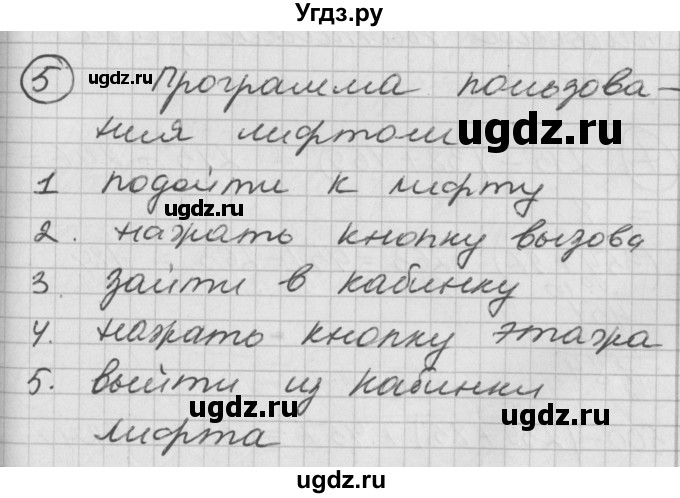 Угдз.ру
5 Программа пользова-
ugdz.ru
ния лифтом
ugdz.ru
1 подойти к лифту
ugdz.ru
2. нажать кнопку вызова
3. зайти в кабинку
4. нажать кнопку этажа
5. выйти из кабинки
ugdz.ru ugdz.ru
лифта
ugdz.ru